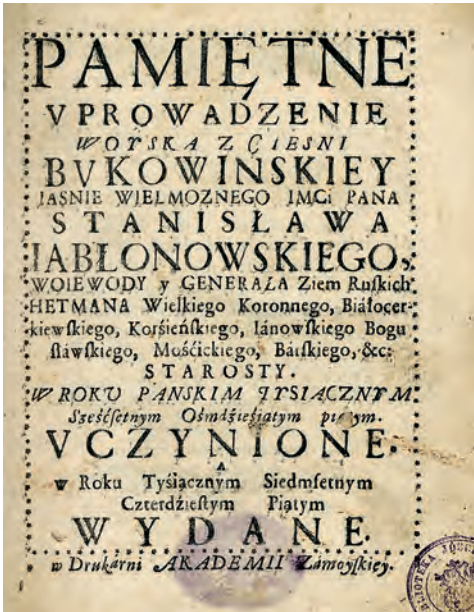 PAMIĘTNE
VPROWADZENIE
WOYSKA Z CIESNI
BVKOWINSKIEY
IASNIE WIELMOZNEGO IMCi PANA
STANISŁAWA
IABŁONOWSKIEGO,
WOIEWODY y GENERAŁA Ziem Ruſkich
HETMANA Wielkiego Koronnego, Białocer-
kiewſkiego, Korśieńſkiego, Iánowſkiego Bogu
ſláwſkiego, Mośćickiego, Bárſkiego, &c:
STAROSTY.
W ROKU PANSKIM TYSIĄCZNYM
Sześćſetnym Ośmdźieśiątym piątym.
VCZYNIONE.
A
w Roku Tyśiącznym Siedmſetnym
Czterdźieſtym Piątym
WYDANE.
w Drukárni AKADEMII Zámoyſkiey.